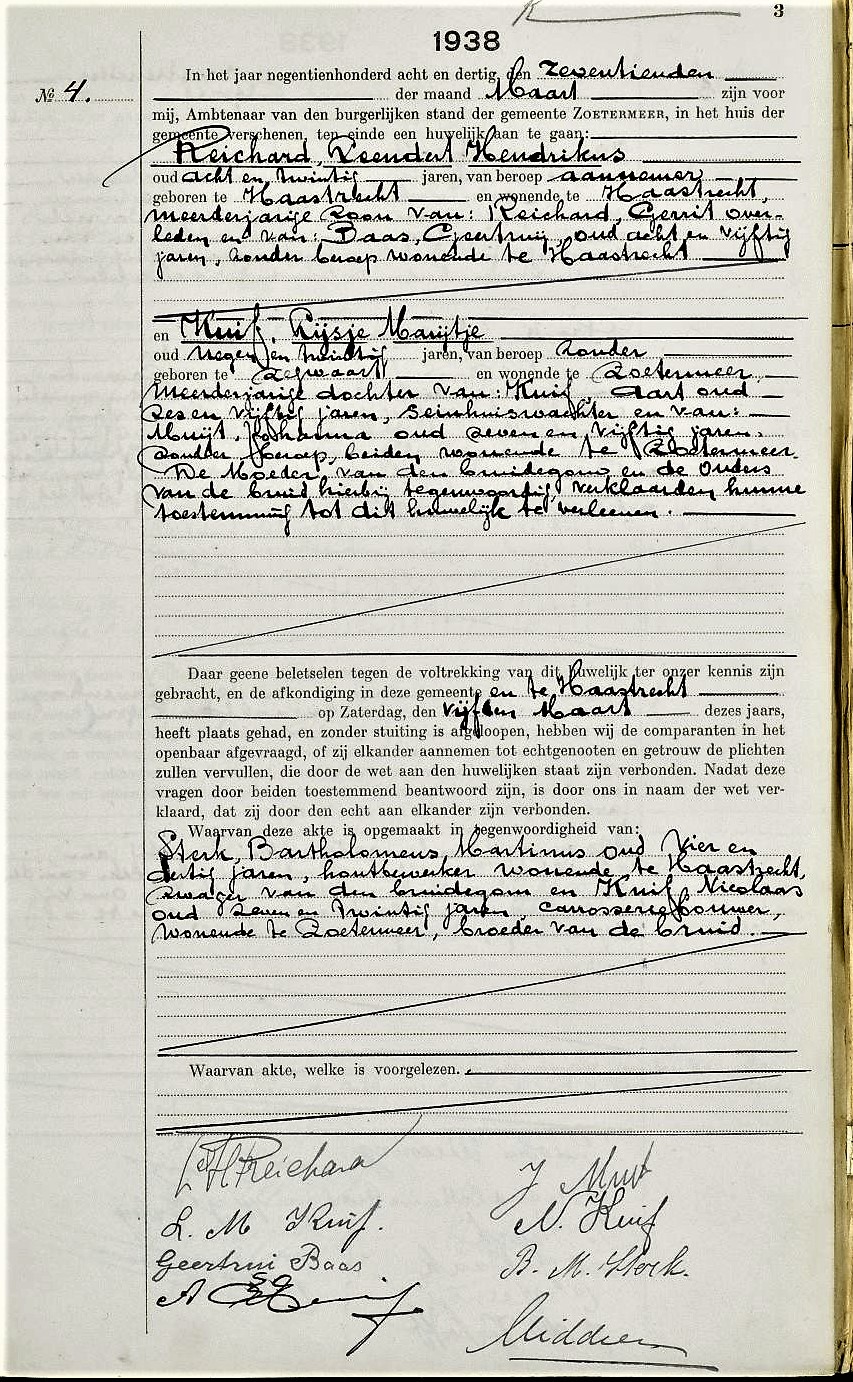 3
1938
№ 4.
In het jaar negentienhonderd acht en dertig, den zeventienden
der maand Maart zijn voor
mij, Ambtenaar van den burgerlijken stand der gemeente ZOETERMEER, in het huis der
gemeente verschenen, ten einde een huwelijk aan te gaan:
Reichard, Leendert Hendrikus
oud acht en twintig jaren, van beroep aannemer
geboren te Haastrecht en wonende te Haastrecht,
meerderjarige zoon van: Reichard, Gerrit over-
leden en van: Baas, Geertruij, oud acht en vijftig
jaren, zonder beroep wonende te Haastrecht
en Kuif, Lijsje Marijtje
oud negen en twintig jaren, van beroep zonder
geboren te Zegwaart en wonende te Zoetermeer
meerderjarige dochter van: Kuif, Aart oud
zes en vijftig jaren, seinhuiswachter en van:
Muijt, Johanna oud zeven en vijftig jaren,
zonder beroep, beiden wonende te Zoetermeer.
De Moeder van den bruidegom en de Ouders
van de bruid hierbij tegenwoordig, verklaarden hunne
toestemming tot dit huwelijk te verleenen.
Daar geene beletselen tegen de voltrekking van dit huwelijk ter onzer kennis zijn
gebracht, en de afkondiging in deze gemeente en te Haastrecht
op Zaterdag, den vijfden Maart dezes jaars,
heeft plaats gehad, en zonder stuiting is afgeloopen, hebben wij de comparanten in het
openbaar afgevraagd, of zij elkander aannemen tot echtgenooten en getrouw de plichten
zullen vervullen, die door de wet aan den huwelijken staat zijn verbonden. Nadat deze
vragen door beiden toestemmend beantwoord zijn, is door ons in naam der wet ver-
klaard, dat zij door den echt aan elkander zijn verbonden.
Waarvan deze akte is opgemaakt in tegenwoordigheid van:
Sterk, Bartholomeus Martinus oud vier en
dertig jaren, houtbewerker wonende te Haastrecht,
zwager van den bruidegom en Kuif, Nicolaas
oud zeven en twintig jaren, carrosseriebouwer,
wonende te Zoetermeer, broeder van de bruid.
Waarvan akte, welke is voorgelezen.
L H Reichard
J Muit
L. M Kuif.
N. Kuif
Geertrui Baas
B. M. Sterk.
A Kuif